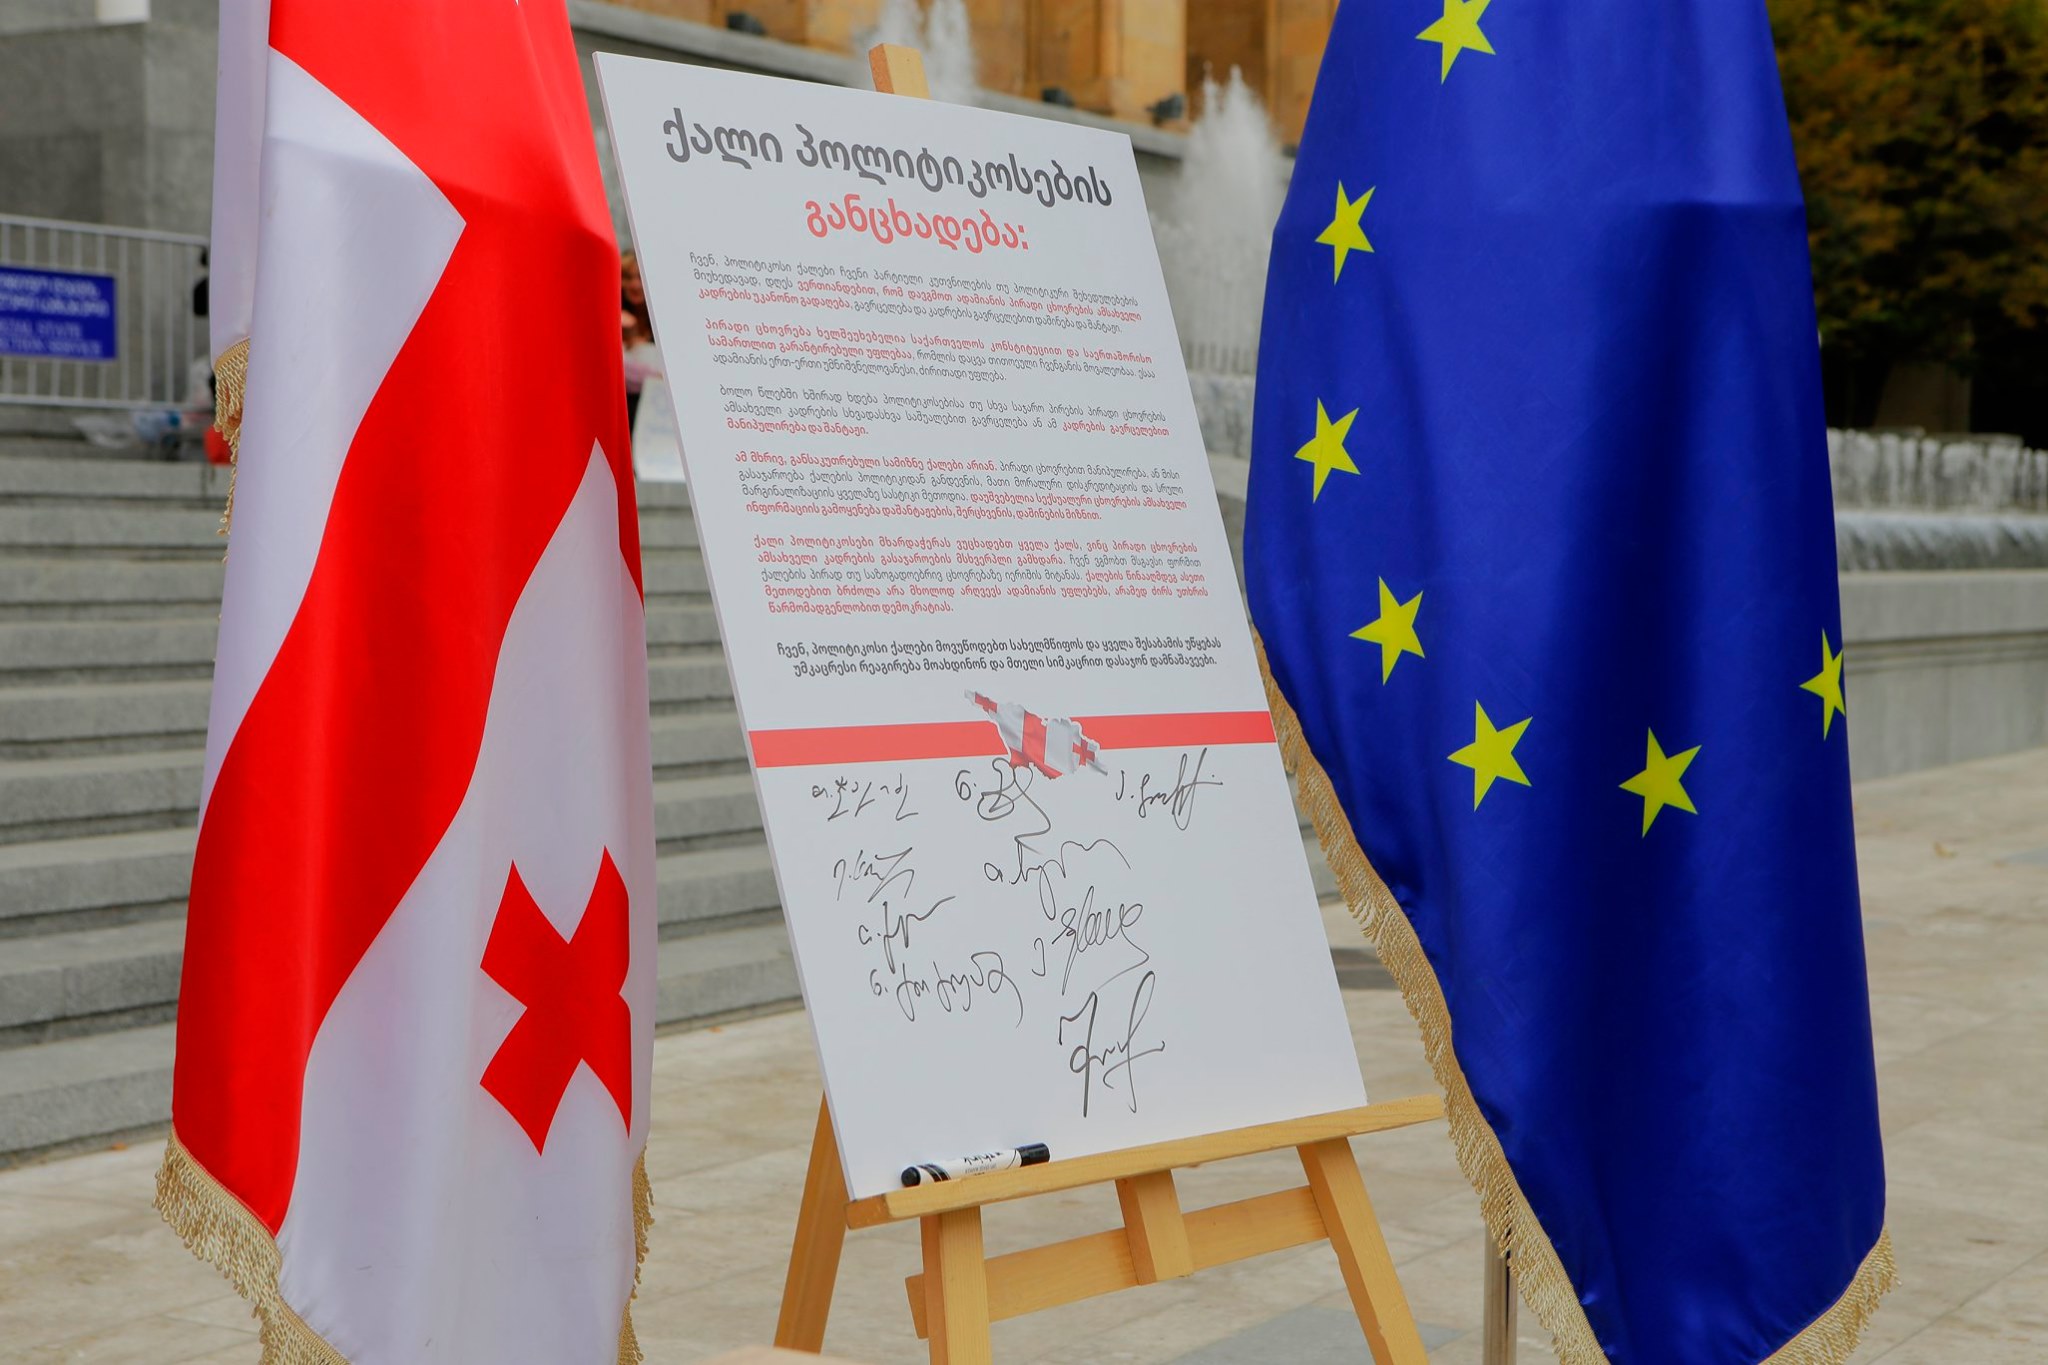 ქალი პოლიტიკოსების
განცხადება:
ჩვენ, პოლიტიკოსი ქალები ჩვენი პარტიული კუთვნილების თუ პოლიტიკური შეხედულებების
მიუხედავად, დღეს ვერთიანდებით, რომ დავგმოთ ადამიანის პირადი ცხოვრების ამსახველი
კადრების უკანონო გადაღება, გავრცელება და კადრების გავრცელებით დაშინება და შანტაჟი.
პირადი ცხოვრება ხელშეუხებელია საქართველოს კონსტიტუციით და საერთაშორისო
სამართლით გარანტირებული უფლებაა, რომლის დაცვა თითოეული ჩვენგანის მოვალეობაა. ესაა
ადამიანის ერთ-ერთი უმნიშვნელოვანესი, ძირითადი უფლება.
ბოლო წლებში ხშირად ხდება პოლიტიკოსებისა თუ სხვა საჯარო პირების პირადი ცხოვრების
ამსახველი კადრების სხვადასხვა საშუალებით გავრცელება ან ამ კადრების გავრცელებით
მანიპულირება და შანტაჟი.
ამ მხრივ, განსაკუთრებული სამიზნე ქალები არიან. პირადი ცხოვრებით მანიპულირება, ან მისი
გასაჯაროება ქალების პოლიტიკიდან განდევნის, მათი მორალური დისკრედიტაციის და სრული
მარგინალიზაციის ყველაზე სასტიკი მეთოდია. დაუშვებელია სექსუალური ცხოვრების ამსახველი
ინფორმაციის გამოყენება დაშანტაჟების, შერცხვენის, დაშინების მიზნით.
ქალი პოლიტიკოსები მხარდაჭერას ვუცხადებთ ყველა ქალს, ვინც პირადი ცხოვრების
ამსახველი კადრების გასაჯაროების მსხვერპლი გამხდარა. ჩვენ ვგმობთ მსგავსი ფორმით
ქალების პირად თუ საზოგადოებრივ ცხოვრებაზე იერიშის მიტანას. ქალების წინააღმდეგ ასეთი
მეთოდებით ბრძოლა არა მხოლოდ არღვევს ადამიანის უფლებებს, არამედ ძირს უთხრის
წარმომადგენლობით დემოკრატიას.
ჩვენ, პოლიტიკოსი ქალები მოვუწოდებთ სახელმწიფოს და ყველა შესაბამის უწყებას
უმკაცრესი რეაგირება მოახდინონ და მთელი სიმკაცრით დასაჯონ დამნაშავეები.